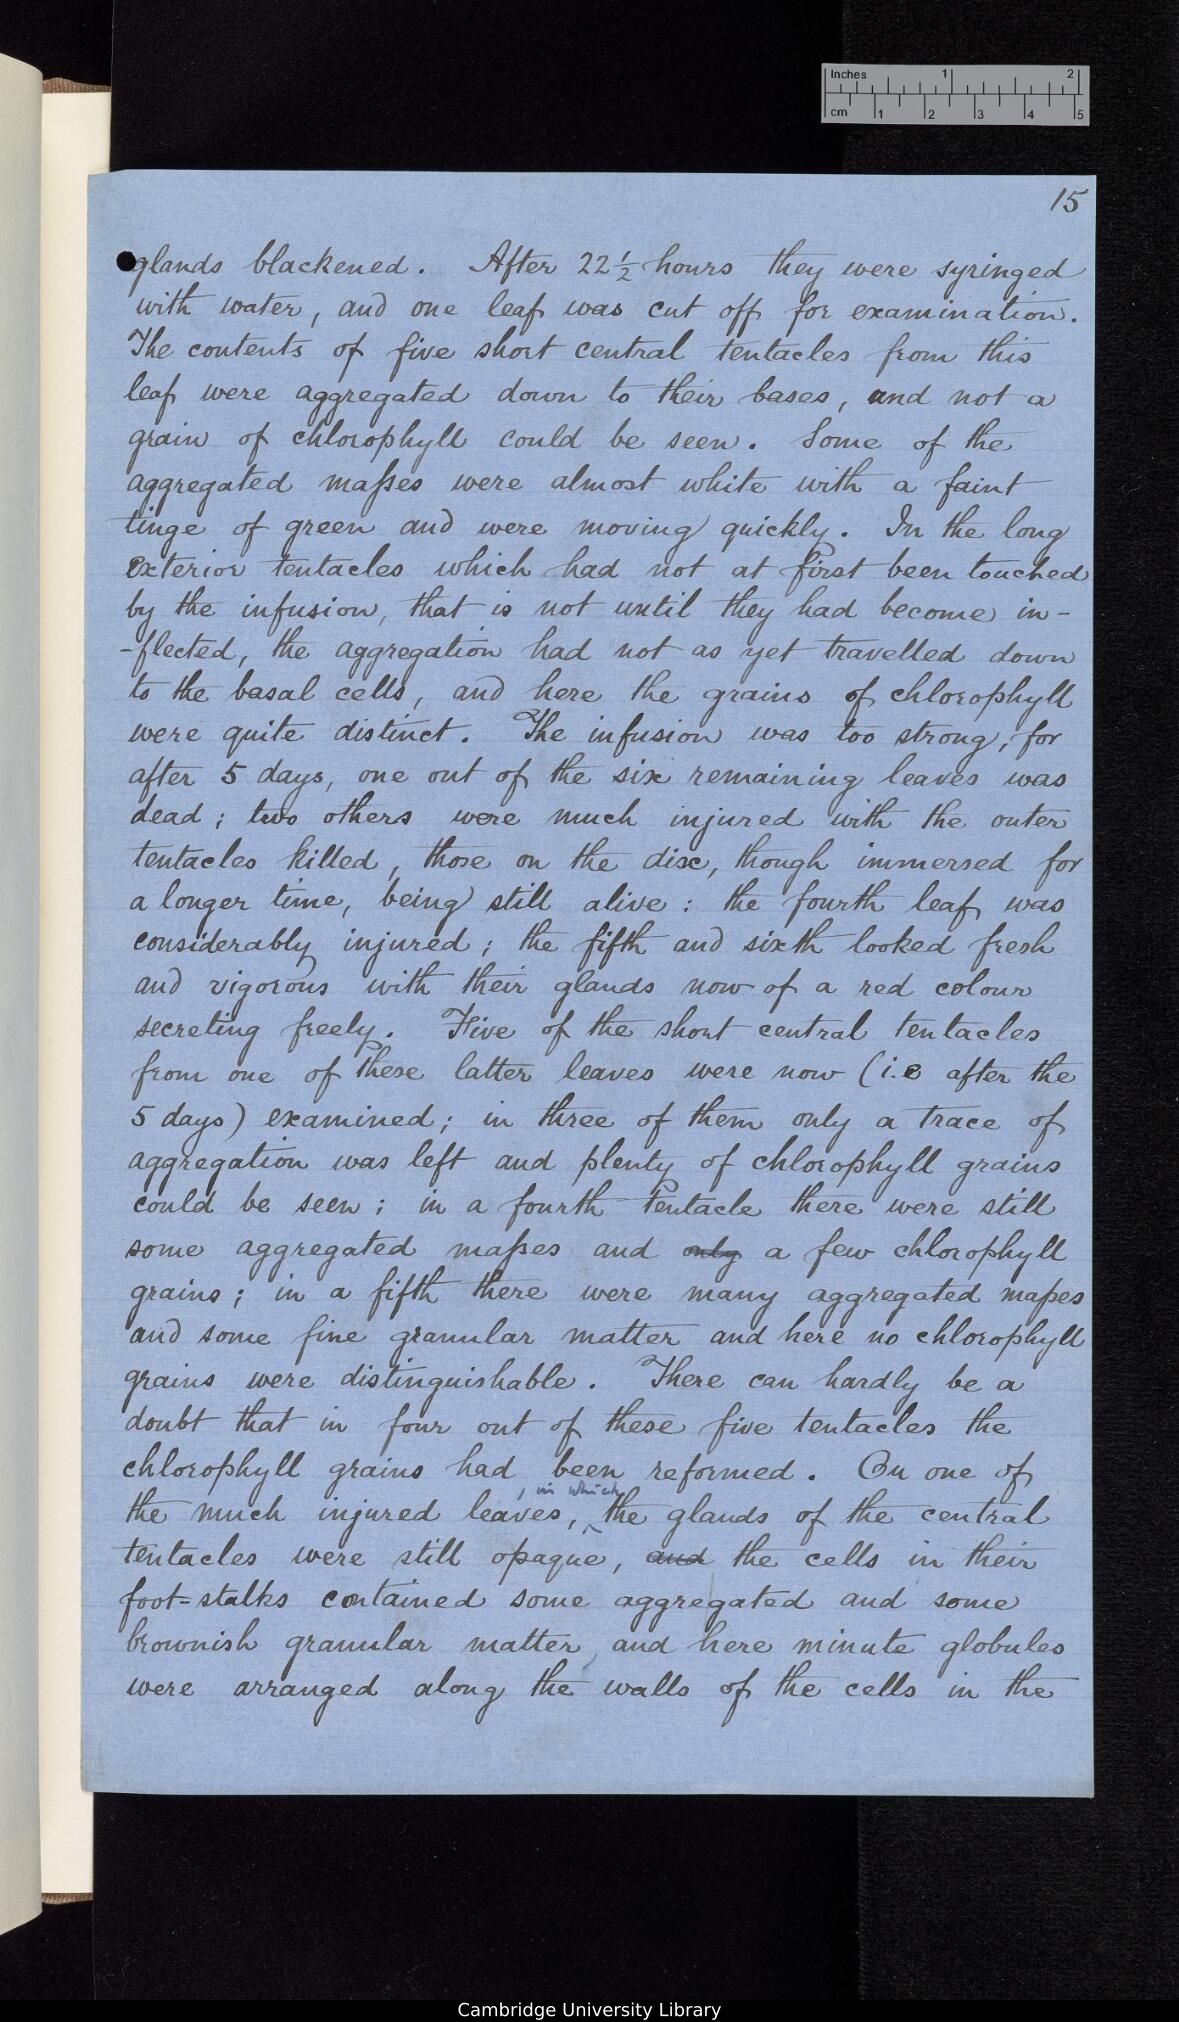 Inches 1 2
cm 1 2 3 4 5
15
glands blackened. After 22 1/2 hours they were syringed
with water, and one leaf was cut off for examination.
The contents of five short central tentacles from this
leaf were aggregated down to their bases, and not a
grain of chlorophyll could be seen. Some of the
aggregated maſses were almost white with a faint
tinge of green and were moving quickly. In the long
exterior tentacles which had not at first been touched
by the infusion, that is not until they had become in-
-flected, the aggregation had not as yet travelled down
to the basal cells, and here the grains of chlorophyll
were quite distinct. The infusion was too strong, for
after 5 days, one out of the six remaining leaves was
dead; two others were much injured with the outer
tentacles killed, those on the disc, though immersed for
a longer time, being still alive: the fourth leaf was
considerably injured; the fifth and sixth looked fresh
and vigorous with their glands now of a red colour
secreting freely. Five of the short central tentacles
from one of these latter leaves were now (i.e after the
5 days) examined; in three of them only a trace of
aggregation was left and plenty of chlorophyll grains
could be seen; in a fourth tentacle there were still
some aggregated maſses and only a few chlorophyll
grains; in a fifth there were many aggregated maſses
and some fine granular matter and here no chlorophyll
grains were distinguishable. There can hardly be a
doubt that in four out of these five tentacles the
chlorophyll grains had been reformed. On one of
, in which
the much injured leaves, ^ the glands of the central
tentacles were still opaque, and the cells in their
foot=stalks contained some aggregated and some
brownish granular matter, and here minute globules
were arranged along the walls of the cells in the
Cambridge University Library